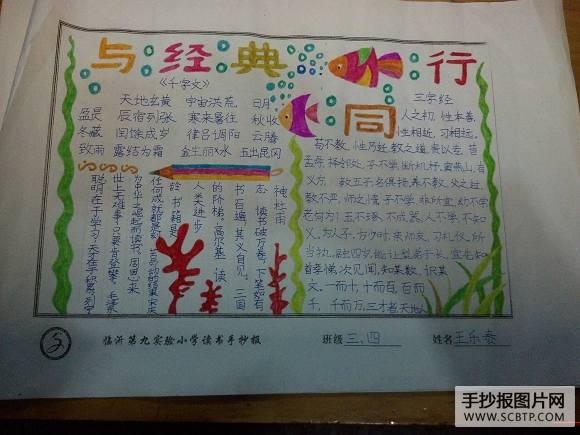 与经典同行
《千字文》
天地玄黄 宇宙洪荒 日月
盈昃 辰宿列张 寒来暑往 秋收
冬藏 闰馀成岁 律吕调阳 云腾
致雨 露结为霜 金生丽水 玉出昆冈
三字经
人之初 性本善,
性相近,习相远,
苟不教,性乃迁,教之道,贵以专,昔
孟母,择邻处,子不学,断机杼,窦燕山,有
义方,教五子,名俱扬,养不教,父之过,
教不严,师之惰,子不学,非所宜,幼不学
老何为,玉不琢,不成器,人不学,不知
义,为人子,方少时,亲师友,习礼仪,
当执,融四岁,能让梨,弟于长,宜先知
首孝悌,次见闻,知某数,识某
文,一而十,十而百,百而
千,千而万,三才者,天地人
神杜甫
读书破万卷,下笔如有
书百遍,其义自见,三国
的阶梯,高尔基 读
人类进步
书籍是
任何成就都是刻苦劳动的结果
为中华之崛起而读书,周恩来
世上无难事,只要肯登攀,毛泽东
聪明在于学习,天才在于积累
临沂第九实验小学读书手抄报
班级 三、四
姓名 王乐泰
手抄报图片网
WWW.SCBTP.COM